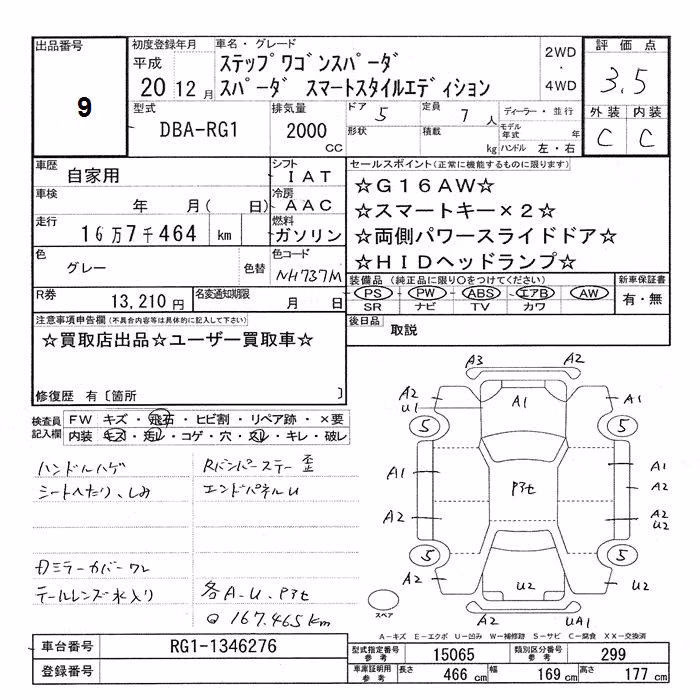 出品番号
9
初度登録年月
平成
20 12月
車名・グレード
ステップワゴンスパーダ
スパーダ スマートスタイルエディション
2WD
・
4WD
評価点
3.5
型式
DBA-RG1
排気量
2000
CC
ドア 5
形状
定員 7 人
積載 kg
ディーラー・並行
モデル年式 年
ハンドル 左・右
外装 内装
C C
車歴
自家用
シフト
IAT
車検
年 月( 日)
冷房
AAC
走行
16万7千464 km
燃料
ガソリン
色
グレー
色替
色コード
NH737M
R券
13,210円
名変通知期限
月 日
セールスポイント(正常に機能するものに限ります)
☆G16AW☆
☆スマートキー×2☆
☆両側パワースライドドア☆
☆HIDヘッドランプ☆
装備品 (純正品に限り○をつけてください)
PS PW ABS エアB AW
SR ナビ TV カワ
新車保証書
有・無
後日品
取説
注意事項申告欄(不具合内容等は具体的に記入して下さい)
☆買取店出品☆ユーザー買取車☆
修復歴 有〔箇所 〕
検査員
記入欄
FW キズ・飛石・ヒビ割・リペア跡・×要
内装 キズ・汚レ・コゲ・穴・スレ・キレ・破レ
ハンドルハゲ
シートヘたり、しみ
Dミラーカバーワレ
テールレンズ水入り
Rバンパーステー歪
エンドパネルU
各A-U.P3セ
Q 167.465km
A3 A2
A2
U1
A1
A1
A2
5 5
A1
A1
A2
P3セ
A2
A2
U2
5 5
A2
U2
U2
A2
UA1
スペア
A-キズ E-エクボ U-凹み W-補修跡 S-サビ C-腐食 XX-交換済
車台番号
RG1-1346276
登録番号
型式指定番号
参考
15065
類別区分番号
参考
299
車庫証明用
参考
長さ
466 cm
幅
169 cm
高さ
177 cm